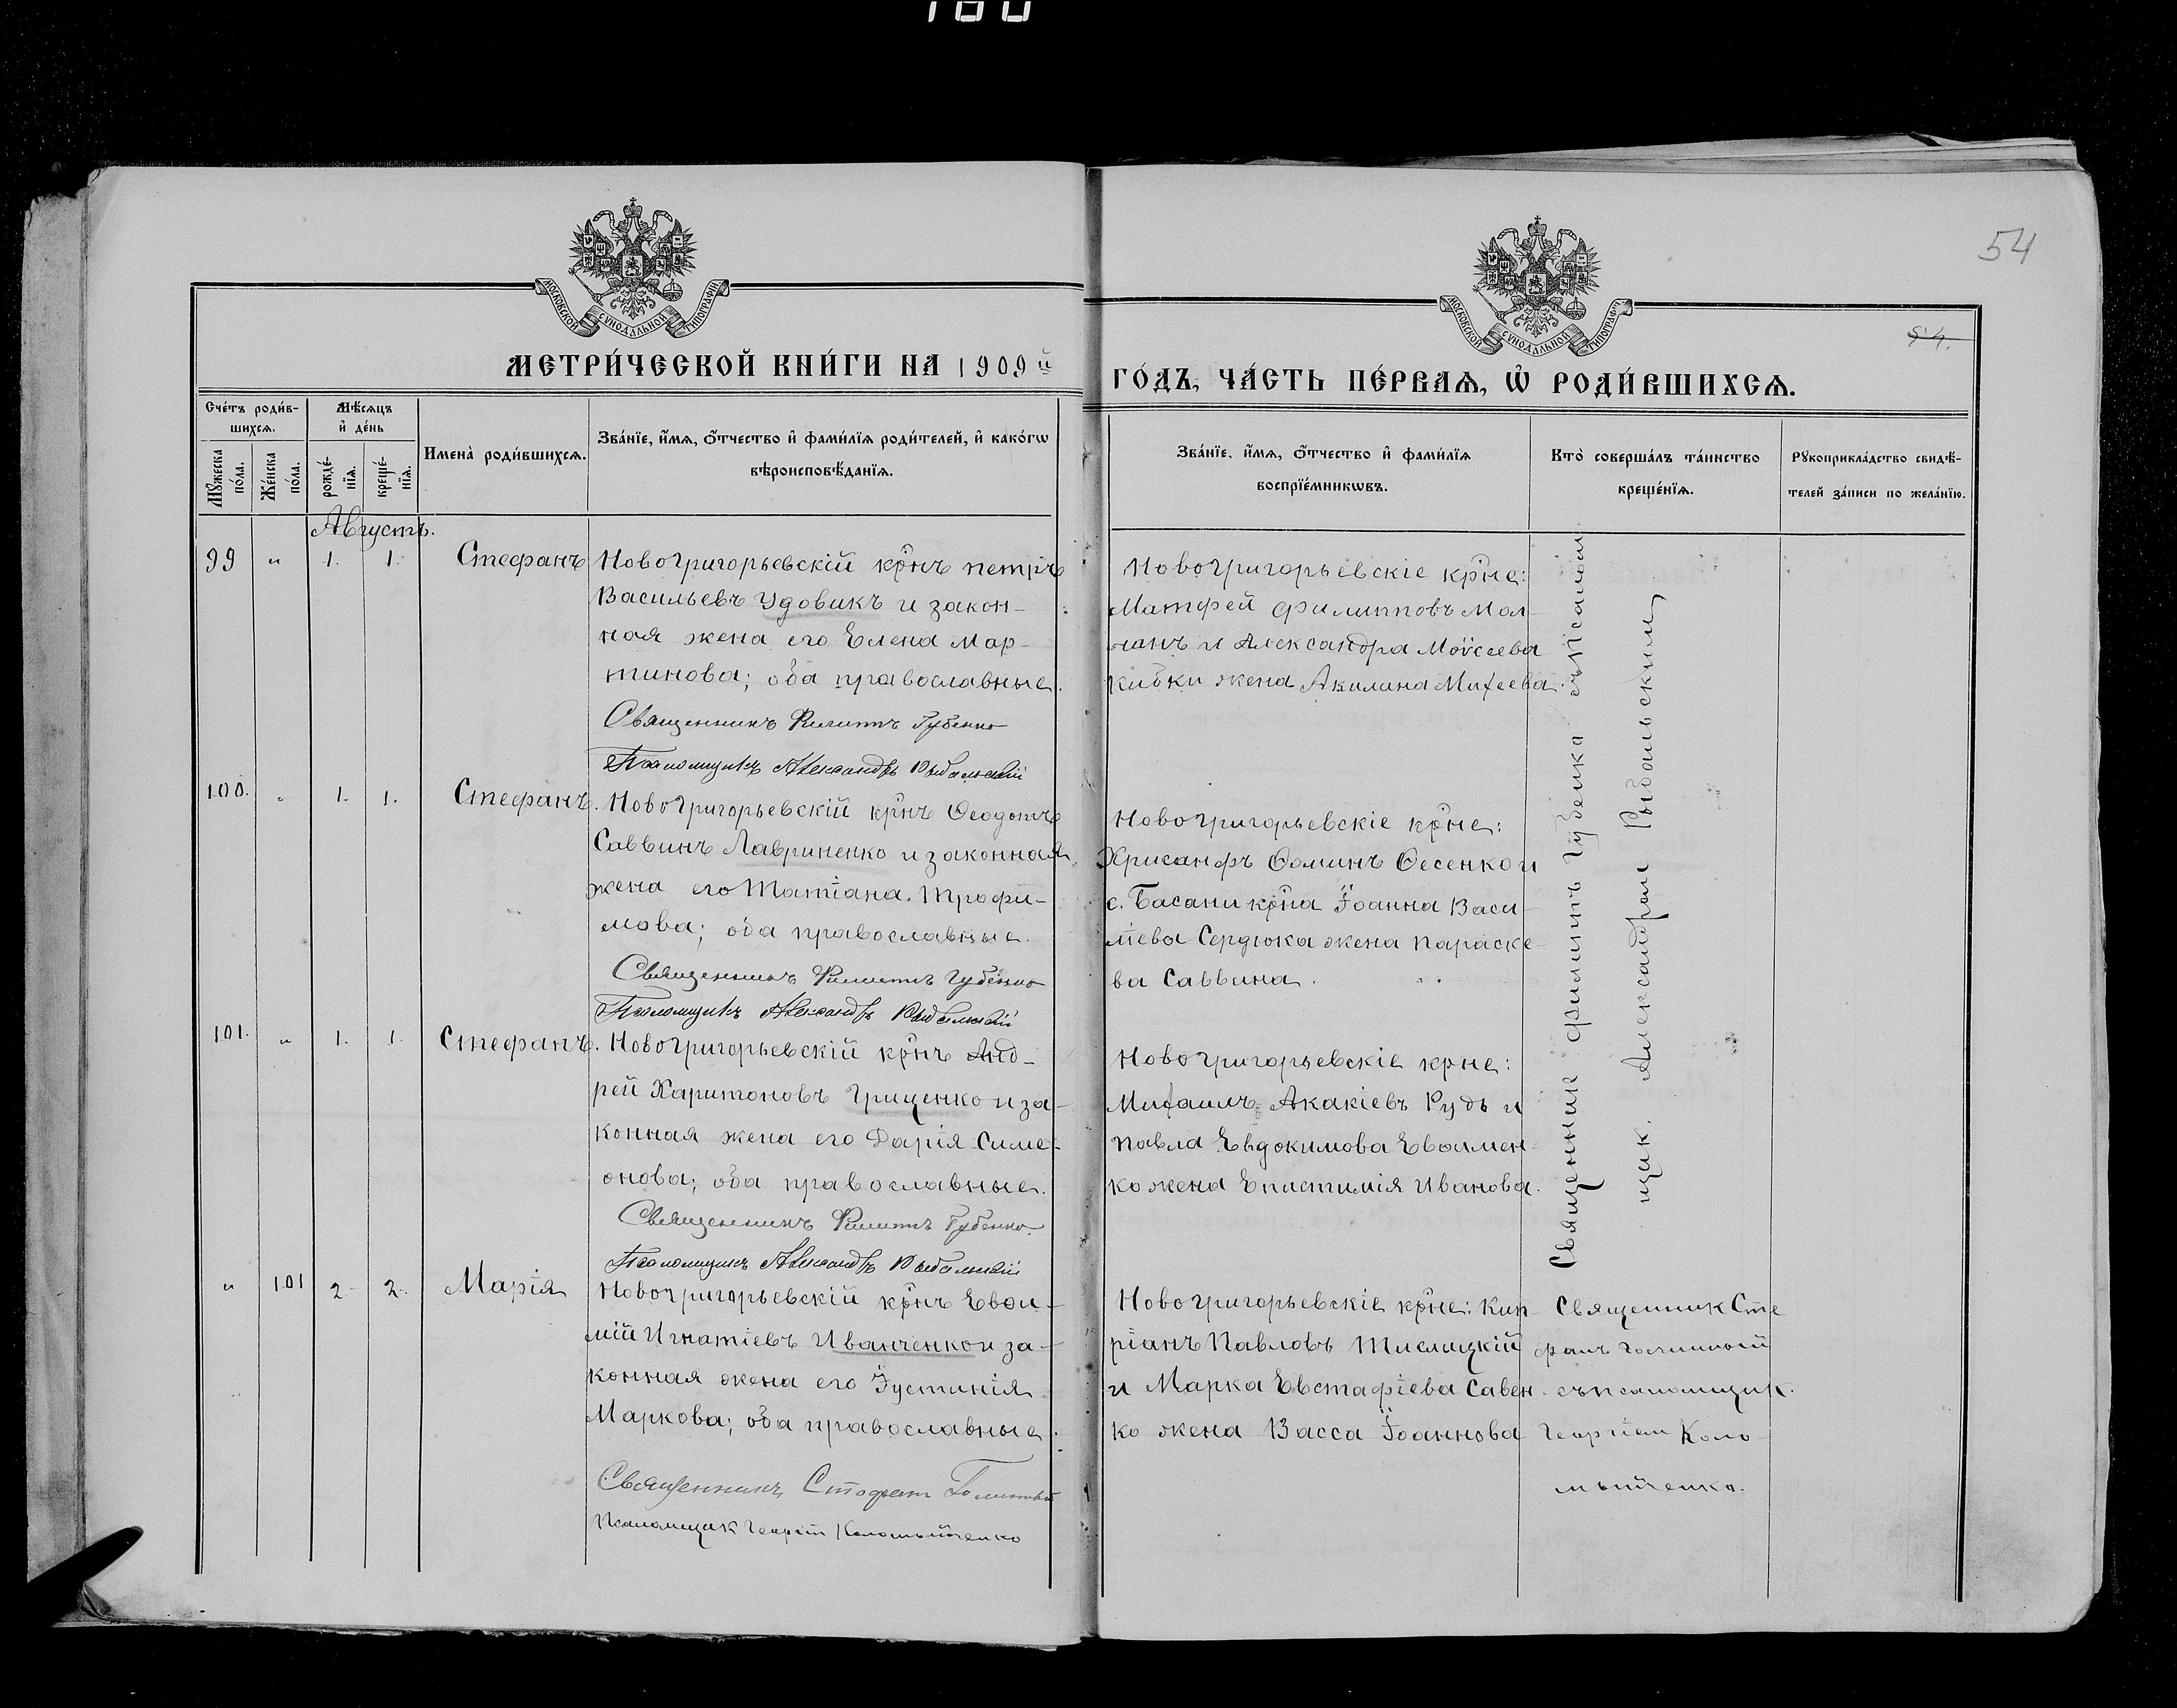 180
54
54.
МОСКОВСКОЙ СѴНОДАЛЬНОЙ ТИПОГРАФІИ
МОСКОВСКОЙ СѴНОДАЛЬНОЙ ТИПОГРАФІИ
МЕТРИ́ЧЕСКОЙ КНИ́ГИ НА 1909й
ГО́ДЪ, ЧА́СТЬ ПЕ́РВАѦ, Ѡ҆ РОДИ́ВШИХСѦ.
Сче́тъ роди́в-
шихсѧ.
Мꙋ́жеска по́ла.
Же́нска по́ла.
Мѣ́сѧцъ
и҆ де́нь
рожде́-нїѧ.
креще́-нїѧ.
Имена̀ роди́вшихсѧ.
Зва́нїе, и҆́мѧ, ѻ҆́тчество и҆ фами́лїѧ роди́телей, и҆ како́гѡ
вѣроисповѣ́данїѧ.
Зва́нїе, и҆́мѧ, ѻ҆́тчество и҆ фами́лїѧ
воспрїе́мникѡвъ.
Кто̀ соверша́лъ та́инство
креще́нїѧ.
Рꙋкоприкла́дство свидѣ́-
телей за́писи по жела́нїю.
Августъ.
99 " 1. 1. Стефанъ
Новогригорьевскій крнъ Петръ
Васильевъ Удовикъ и закон-
ная жена его Елена Мар-
тинова; оба православные.
Священникъ Филиппъ Губенко
Псаломщикъ Александръ Рыбальскій
Новогригорьевскіе крне:
Матфей Филипповъ Мол-
чанъ и Александра Моѵсеева
Кибки жена Акилина Михеева.
100. " 1. 1. Стефанъ.
Новогригорьевскій крнъ Ѳеодотъ
Саввинъ Лавриненко и законная
жена его Татіана Трофи-
мова; оба православные.
Священникъ Филиппъ Губенко
Псаломщикъ Александръ Рыбальскій
Новогригорьевскіе крне:
Хрисанфъ Ѳоминъ Ѳесенко и
с. Басани крна Іоанна Васи-
лieва Сердюка жена Параске-
ва Саввина.
101. " 1. 1. Стефанъ.
Новогригорьевскій крнъ Анд-
рей Харитоновъ Гриценко и за-
конная жена его Дарія Симе-
онова; оба православные.
Священникъ Филиппъ Губенко
Псаломщикъ Александръ Рыбальскій
Новогригорьевскіе крне:
Михаилъ Акакіевъ Рудь и
Павла Евдокимова Евфимен-
ко жена Епистимія Иванова.
Священник Филиппъ Губенко съ Псалом
щик. Александром Рыбальским
" 101 2. 2. Марія
Новогригорьевскій крнъ Евѳи-
мій Игнатіевъ Иванченко и за-
конная жена его Іустинія
Маркова; оба православные.
Священникъ Стефан Голинный
Псаломщик Георгій Коломыйченко
Новогригорьевскіе крне: Кип-
ріанъ Павловъ Тислицкій
и Марка Евстафіева Савен-
ко жена Васса Іоаннова
Священник Сте
съ псаломщик.
Георгіем Коло-
мыйченко.